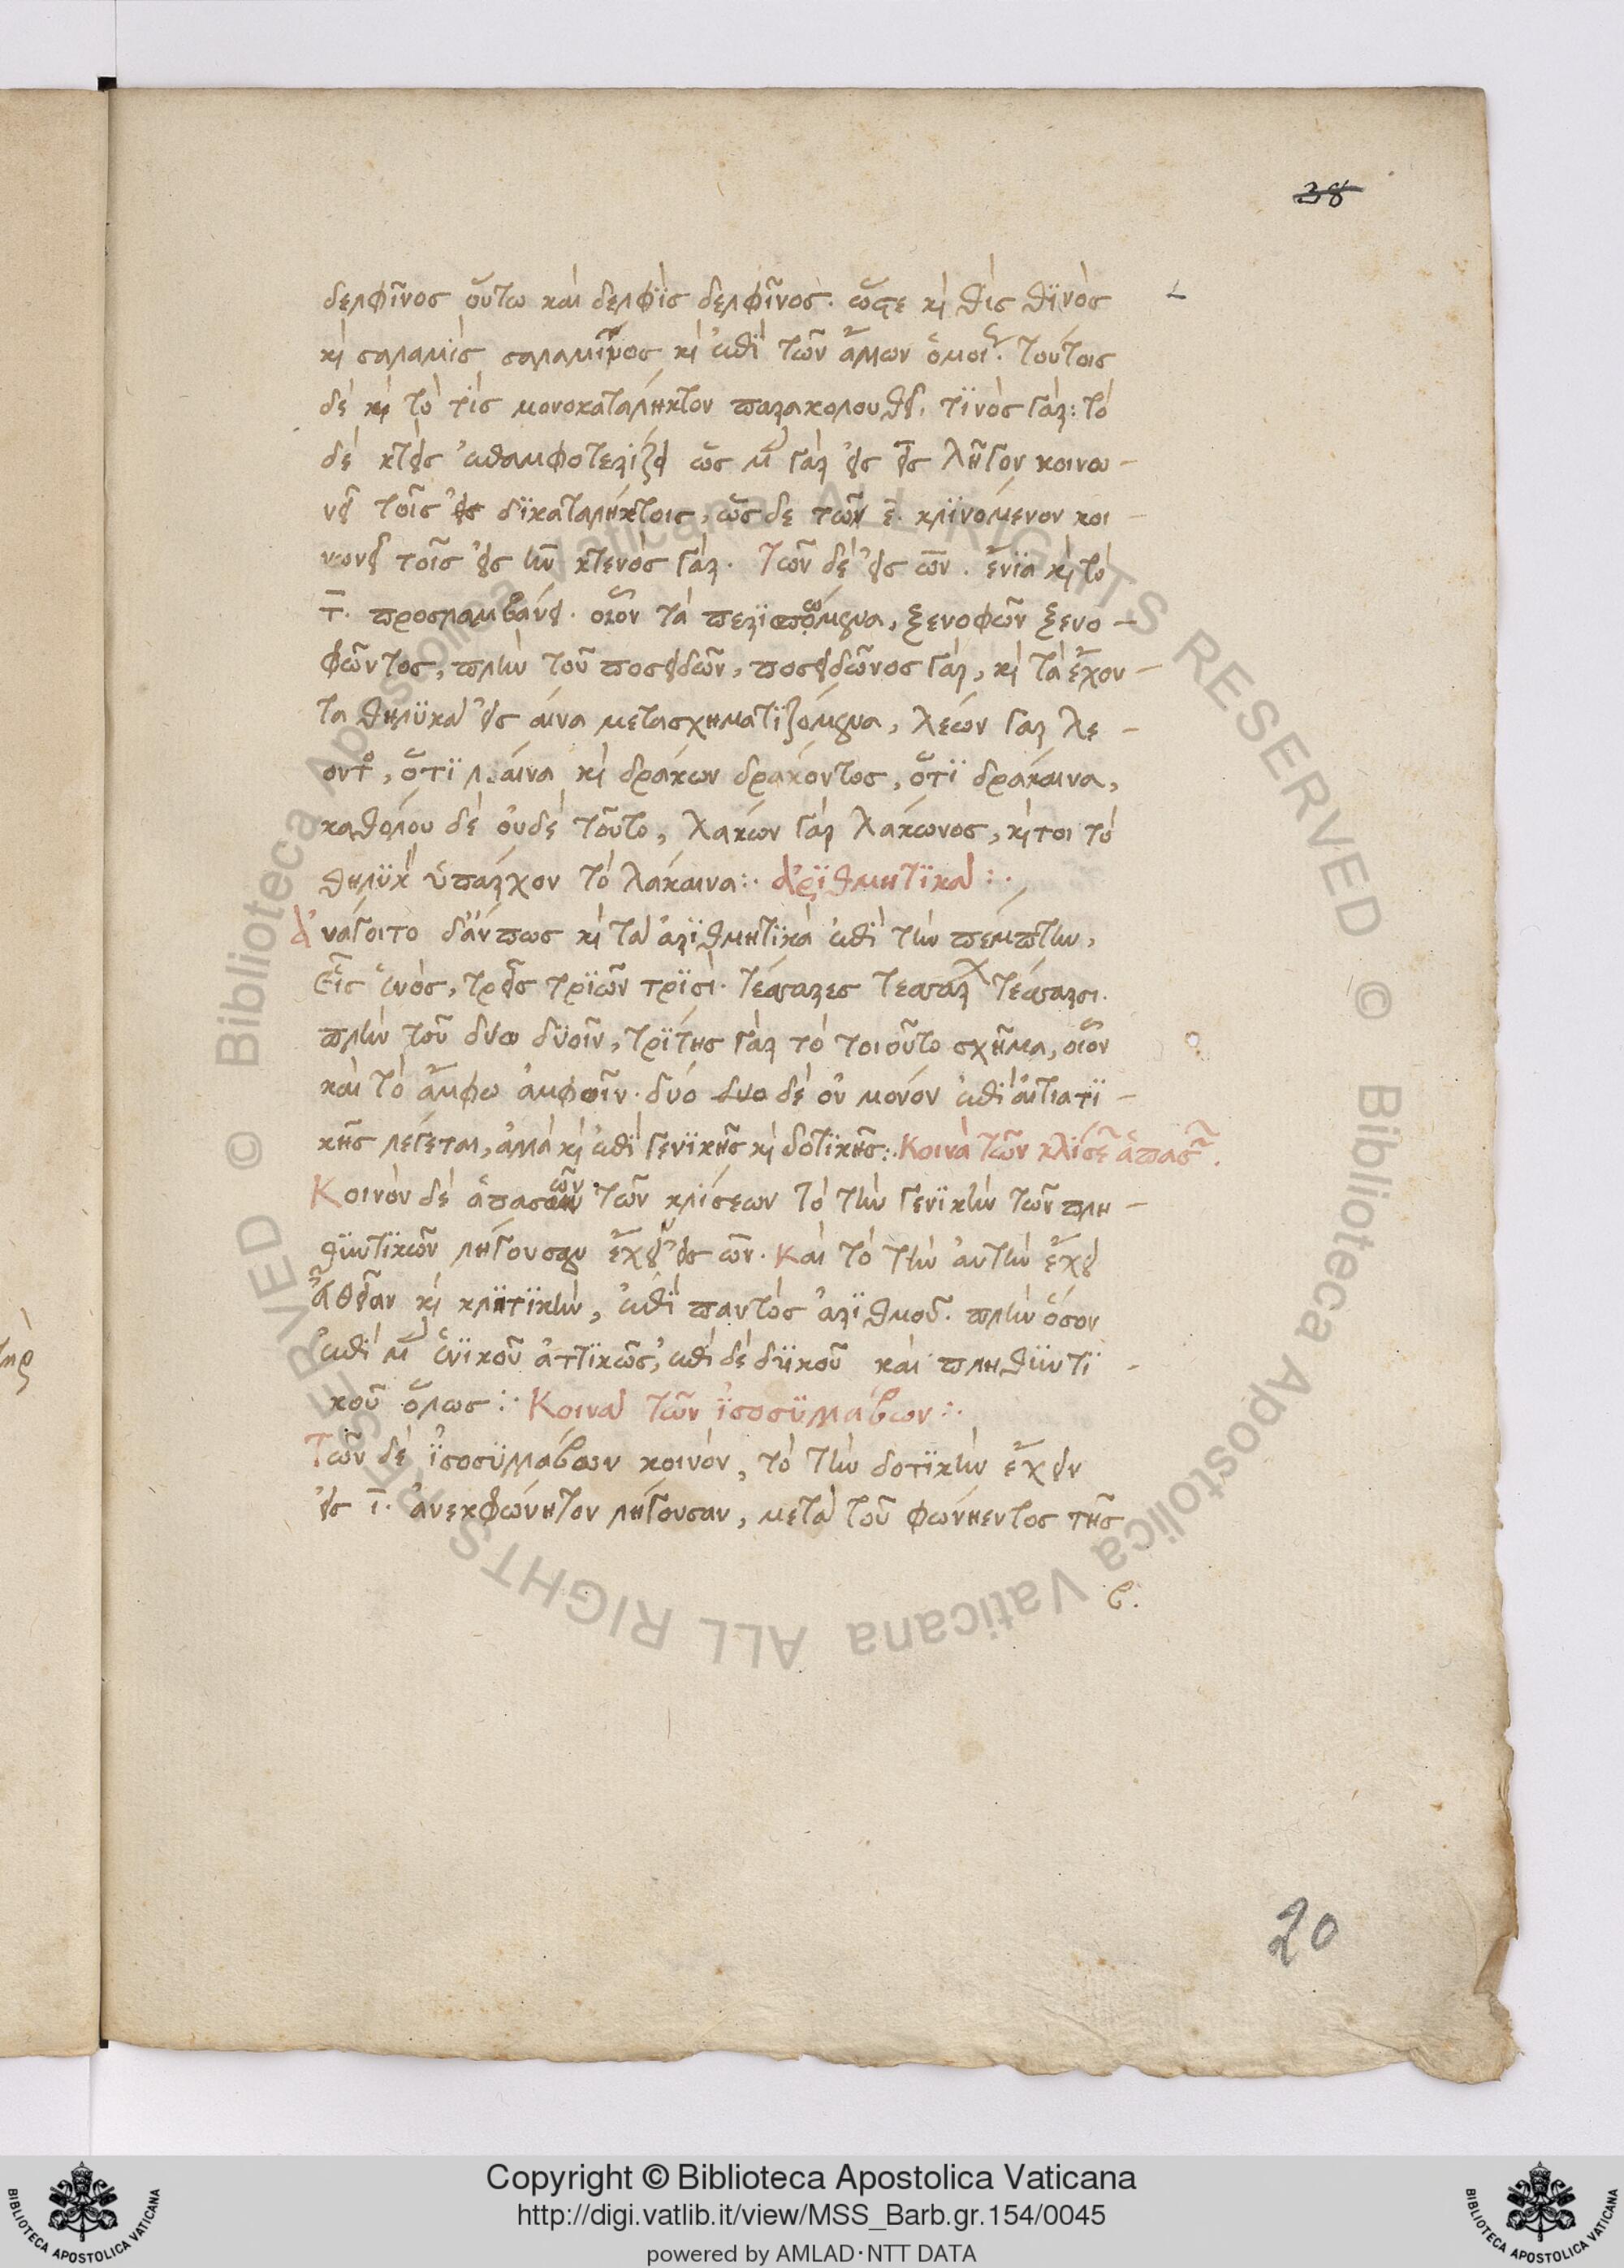 38
δελφῖνος οὕτω καὶ δελφὶς δελφῖνος· ὥστε κ̀ θὶς θινὸς
κ̀ σαλαμὶς σαλαμῖνος κ̀ ἐπὶ τῶν ἄλλων ὁμοί· τούτοις
δὲ κ̀ τὸ τὶς μονοκατάληκτον παρακολουθεῖ· τινὸς γάρ: τὸ
δὲ κτεὶς ἐπαμφοτερίζει ὡς μ̀ γὰρ εἰς εῑς λῆγον κοινω-
νεῖ τοῖς εἰς δικαταλήκτοις, ὡς δὲ τῶν ε̄· κλινόμενον κοι-
νωνεῖ τοῖς εἰς ην κτενὸς γάρ· Τῶν δὲ εἰς ω̄ν· ἔνια κ̀ τὸ
τ̄· προσλαμβάνει· οἷον τὰ περισπώμενα, ξενοφῶν ξενο-
φῶντος, πλὴν τοῦ ποσειδῶν, ποσειδῶνος γάρ, κ̀ τὰ ἔχον-
τα θηλυκὰ εἰς αινα μετασχηματιζόμενα, λέων γὰρ λέ-
οντο, ὅτι λέαινα κ̀ δράκων δράκοντος, ὅτι δράκαινα,
καθόλου δὲ οὐδὲ τοῦτο, λάκων γὰρ λάκωνος, κ̀τοι τὸ
θηλυκ ὑπάρχον τὸ λάκαινα:· ἀριθμητικά:·
ἀνάγοιτο δ' ἄν πως κ̀ τὰ ἀριθμητικὰ ἐπὶ τὴν πέμπτην,
Εἷς ἑνὸς, τρεῖς τριῶν τρισί· τέσσαρες τεσσάρ τέσσαρσι·
πλὴν τοῦ δύω δυοῖν, τρίτης γὰρ τὸ τοιοῦτο σχῆμα, οἷον
καὶ τὸ ἄμφω ἀμφοῖν· δύο δὲ οὐ μόνον ἐπὶ αἰτιατι-
κῆς λέγεται, ἀλλὰ κ̀ ἐπὶ γενικῆς κ̀ δοτικῆς:· Κοινὰ τῶν κλίσε ἁπασ·
Κοινὸν δὲ ἁπασῶν τῶν κλίσεων τὸ τὴν γενικὴν τῶν πλη-
θυντικῶν λήγουσαν ἔχειν εἰς ω̄ν· Καὶ τὸ τὴν αὐτὴν ἔχει
εὐθεῖαν κ̀ κλητικὴν, ἐπὶ παντὸς ἀριθμοῦ· πλὴν ὅσον
ἐπὶ μ̀ ἑνικοῦ ἀττικῶς, ἐπὶ δὲ δυϊκοῦ καὶ πληθυντι-
κοῦ ὅλως:· Κοινὰ τῶν ἰσοσυλλάβων:·
Τῶν δὲ ἰσοσυλλάβων κοινὸν, τὸ τὴν δοτικὴν ἔχειν
εἰς ῑ· ἀνεκφώνητον λήγουσαν, μετὰ τοῦ φωνήεντος τῆς
β.
20
Copyright © Biblioteca Apostolica Vaticana
http://digi.vatlib.it/view/MSS_Barb.gr.154/0045
powered by AMLAD·NTT DATA
BIBLIOTECA APOSTOLICA VATICANA
BIBLIOTECA APOSTOLICA VATICANA
Biblioteca Apostolica Vaticana ALL RIGHTS RESERVED ©
Biblioteca Apostolica Vaticana ALL RIGHTS RESERVED ©